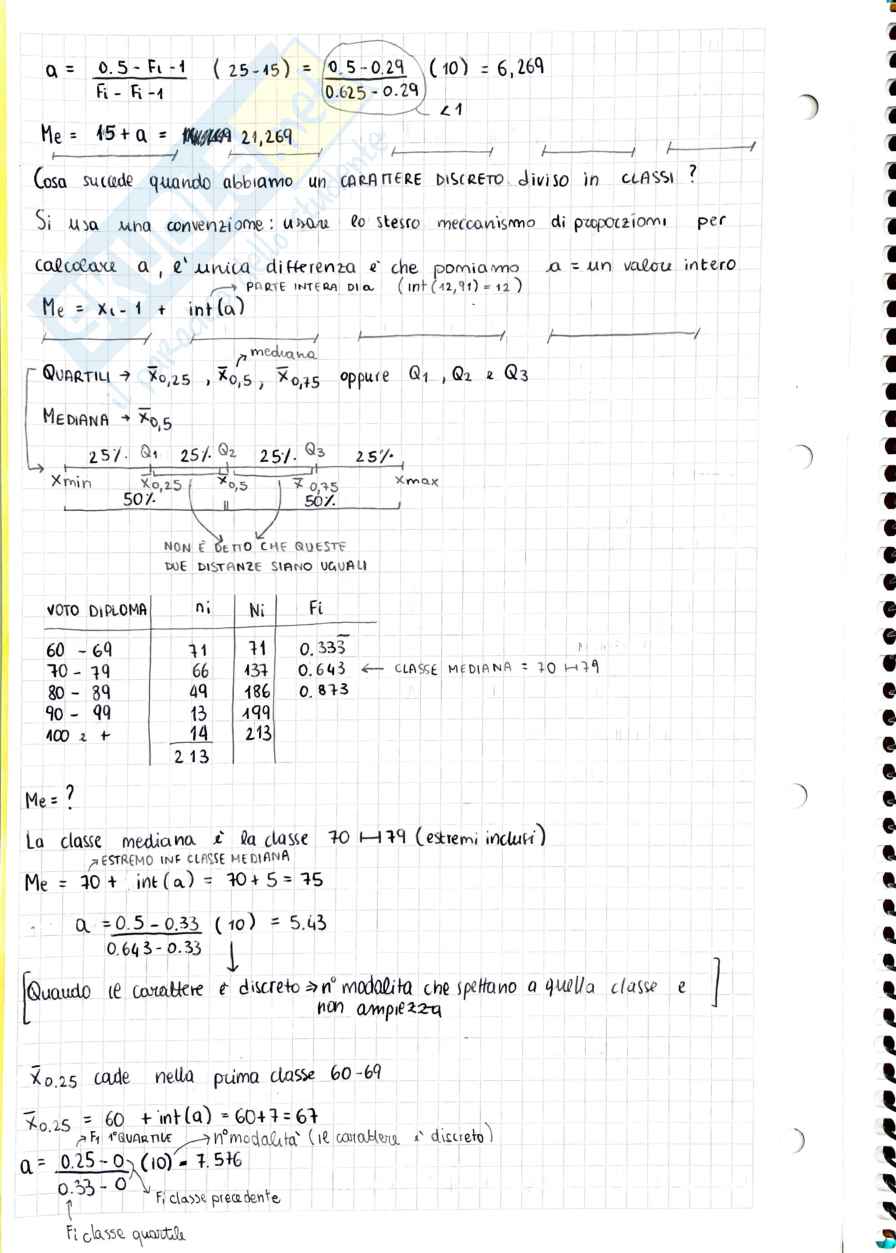 a = 0.5 - Fi-1 / Fi - Fi-1 (25-15) = 0.5-0.29 / 0.625-0.29 (10) = 6,269
<1
Me = 15+a = 21,269
Cosa succede quando abbiamo un CARATTERE DISCRETO diviso in CLASSI ?
Si usa una convenzione: usare lo stesso meccanismo di proporzioni per
calcolare a, l'unica differenza è che poniamo a = un valore intero
→ PARTE INTERA DI a (int(12,91)=12)
Me = xi-1 + int(a)
mediana
QUARTILI → x̄0,25 , x̄0,5 , x̄0,75 oppure Q1 , Q2 e Q3
MEDIANA → x̄0,5
25% Q1 25% Q2 25% Q3 25%
xmin x̄0,25 x̄0,5 x̄0,75 xmax
50% 50%
NON È DETTO CHE QUESTE
DUE DISTANZE SIANO UGUALI
VOTO DIPLOMA ni Ni Fi
60 - 69 71 71 0.333̅
70 - 79 66 137 0.643 ← CLASSE MEDIANA = 70 ⊢⊣ 79
80 - 89 49 186 0.873
90 - 99 13 199
100 e + 14 213
213
Me = ?
La classe mediana è la classe 70 ⊢⊣ 79 (estremi inclusi)
↗ ESTREMO INF CLASSE MEDIANA
Me = 70 + int(a) = 70+5 = 75
a = 0.5 - 0.33 / 0.643 - 0.33 (10) = 5.43
[Quando il carattere è discreto ⇒ n° modalita che spettano a quella classe e
non ampiezza]
x̄0.25 cade nella prima classe 60-69
x̄0.25 = 60 + int(a) = 60+7 = 67
↗ Fi 1° QUARTILE → n° modalità (il carattere è discreto)
a = 0.25 - 0 / 0.33 - 0 (10) = 7.576
Fi classe precedente
Fi classe quartile
skuola.net